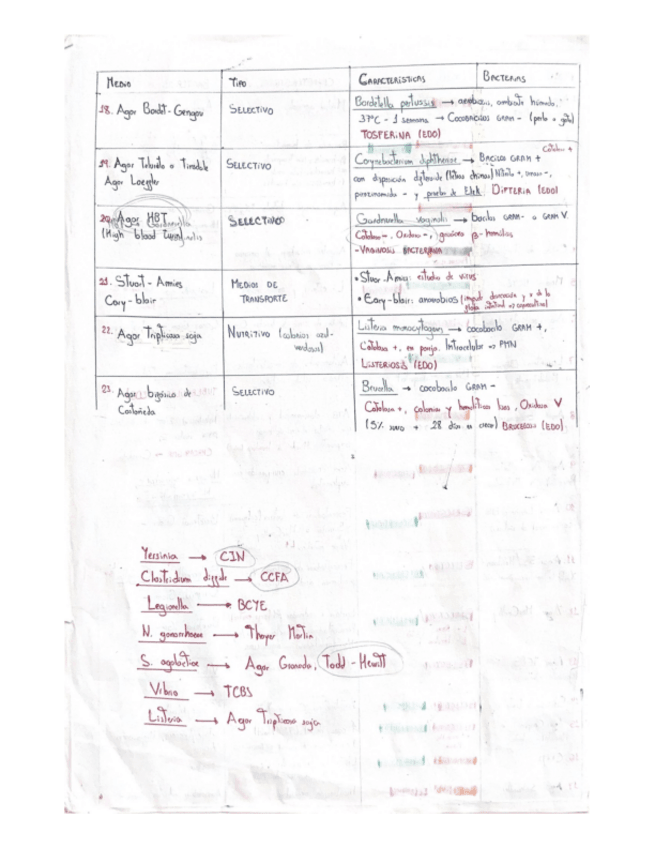 Medio Tipo Características Bacterias
18. Agar Bordet-Gengou Selectivo Bordetella pertussis → aerobios, ambiente húmedo.
37ºC - 1 semana → Cocobacilos GRAM -
TOSFERINA (EDO)
19. Agar Telurito o Tinsdale Selectivo Corynebacterium diphtheriae → Bacilos GRAM + Catalasa +
Agar Loeffler con disposición (letras chinas) Nitrato +, urea -,
pirazinamida - y prueba de Elek DIFTERIA (EDO)
20. Agar HBT Selectivo Gardnerella vaginalis → bacilos GRAM - o GRAM V.
(High blood Catalasa -, Oxidasa -, β-hemólisis
- VAGINOSIS BACTERIANA
21. Stuart - Amies Medios de • Stuar Amies: estudios de virus
Cary-blair transporte • Cary-blair: anaerobios
22. Agar Tripticasa soja Nutritivo (colonias azul- Listeria monocytogen → cocobacilo GRAM +,
verdosas) Catalasa +, en pareja. Intracelular => PMN
LISTERIOSIS (EDO)
23. Agar bifásico de Selectivo Brucella → cocobacilo GRAM -
Castañeda Catalasa +, colonias y hemolíticas lisas, Oxidasa V
(5% + 28 días en crecer) BRUCELOSIS (EDO)
Yersinia → CIN
Clostridium → CCFA
Legionella → BCYE
N. gonorrhoeae → Thayer Martin
S. agalactiae → Agar Granada, Todd-Hewitt
Vibrio → TCBS
Listeria → Agar Tripticasa soja